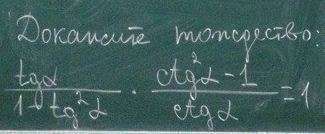 Докажите тождество:
tgα / 1 - tg²α · ctg²α - 1 / ctgα = 1